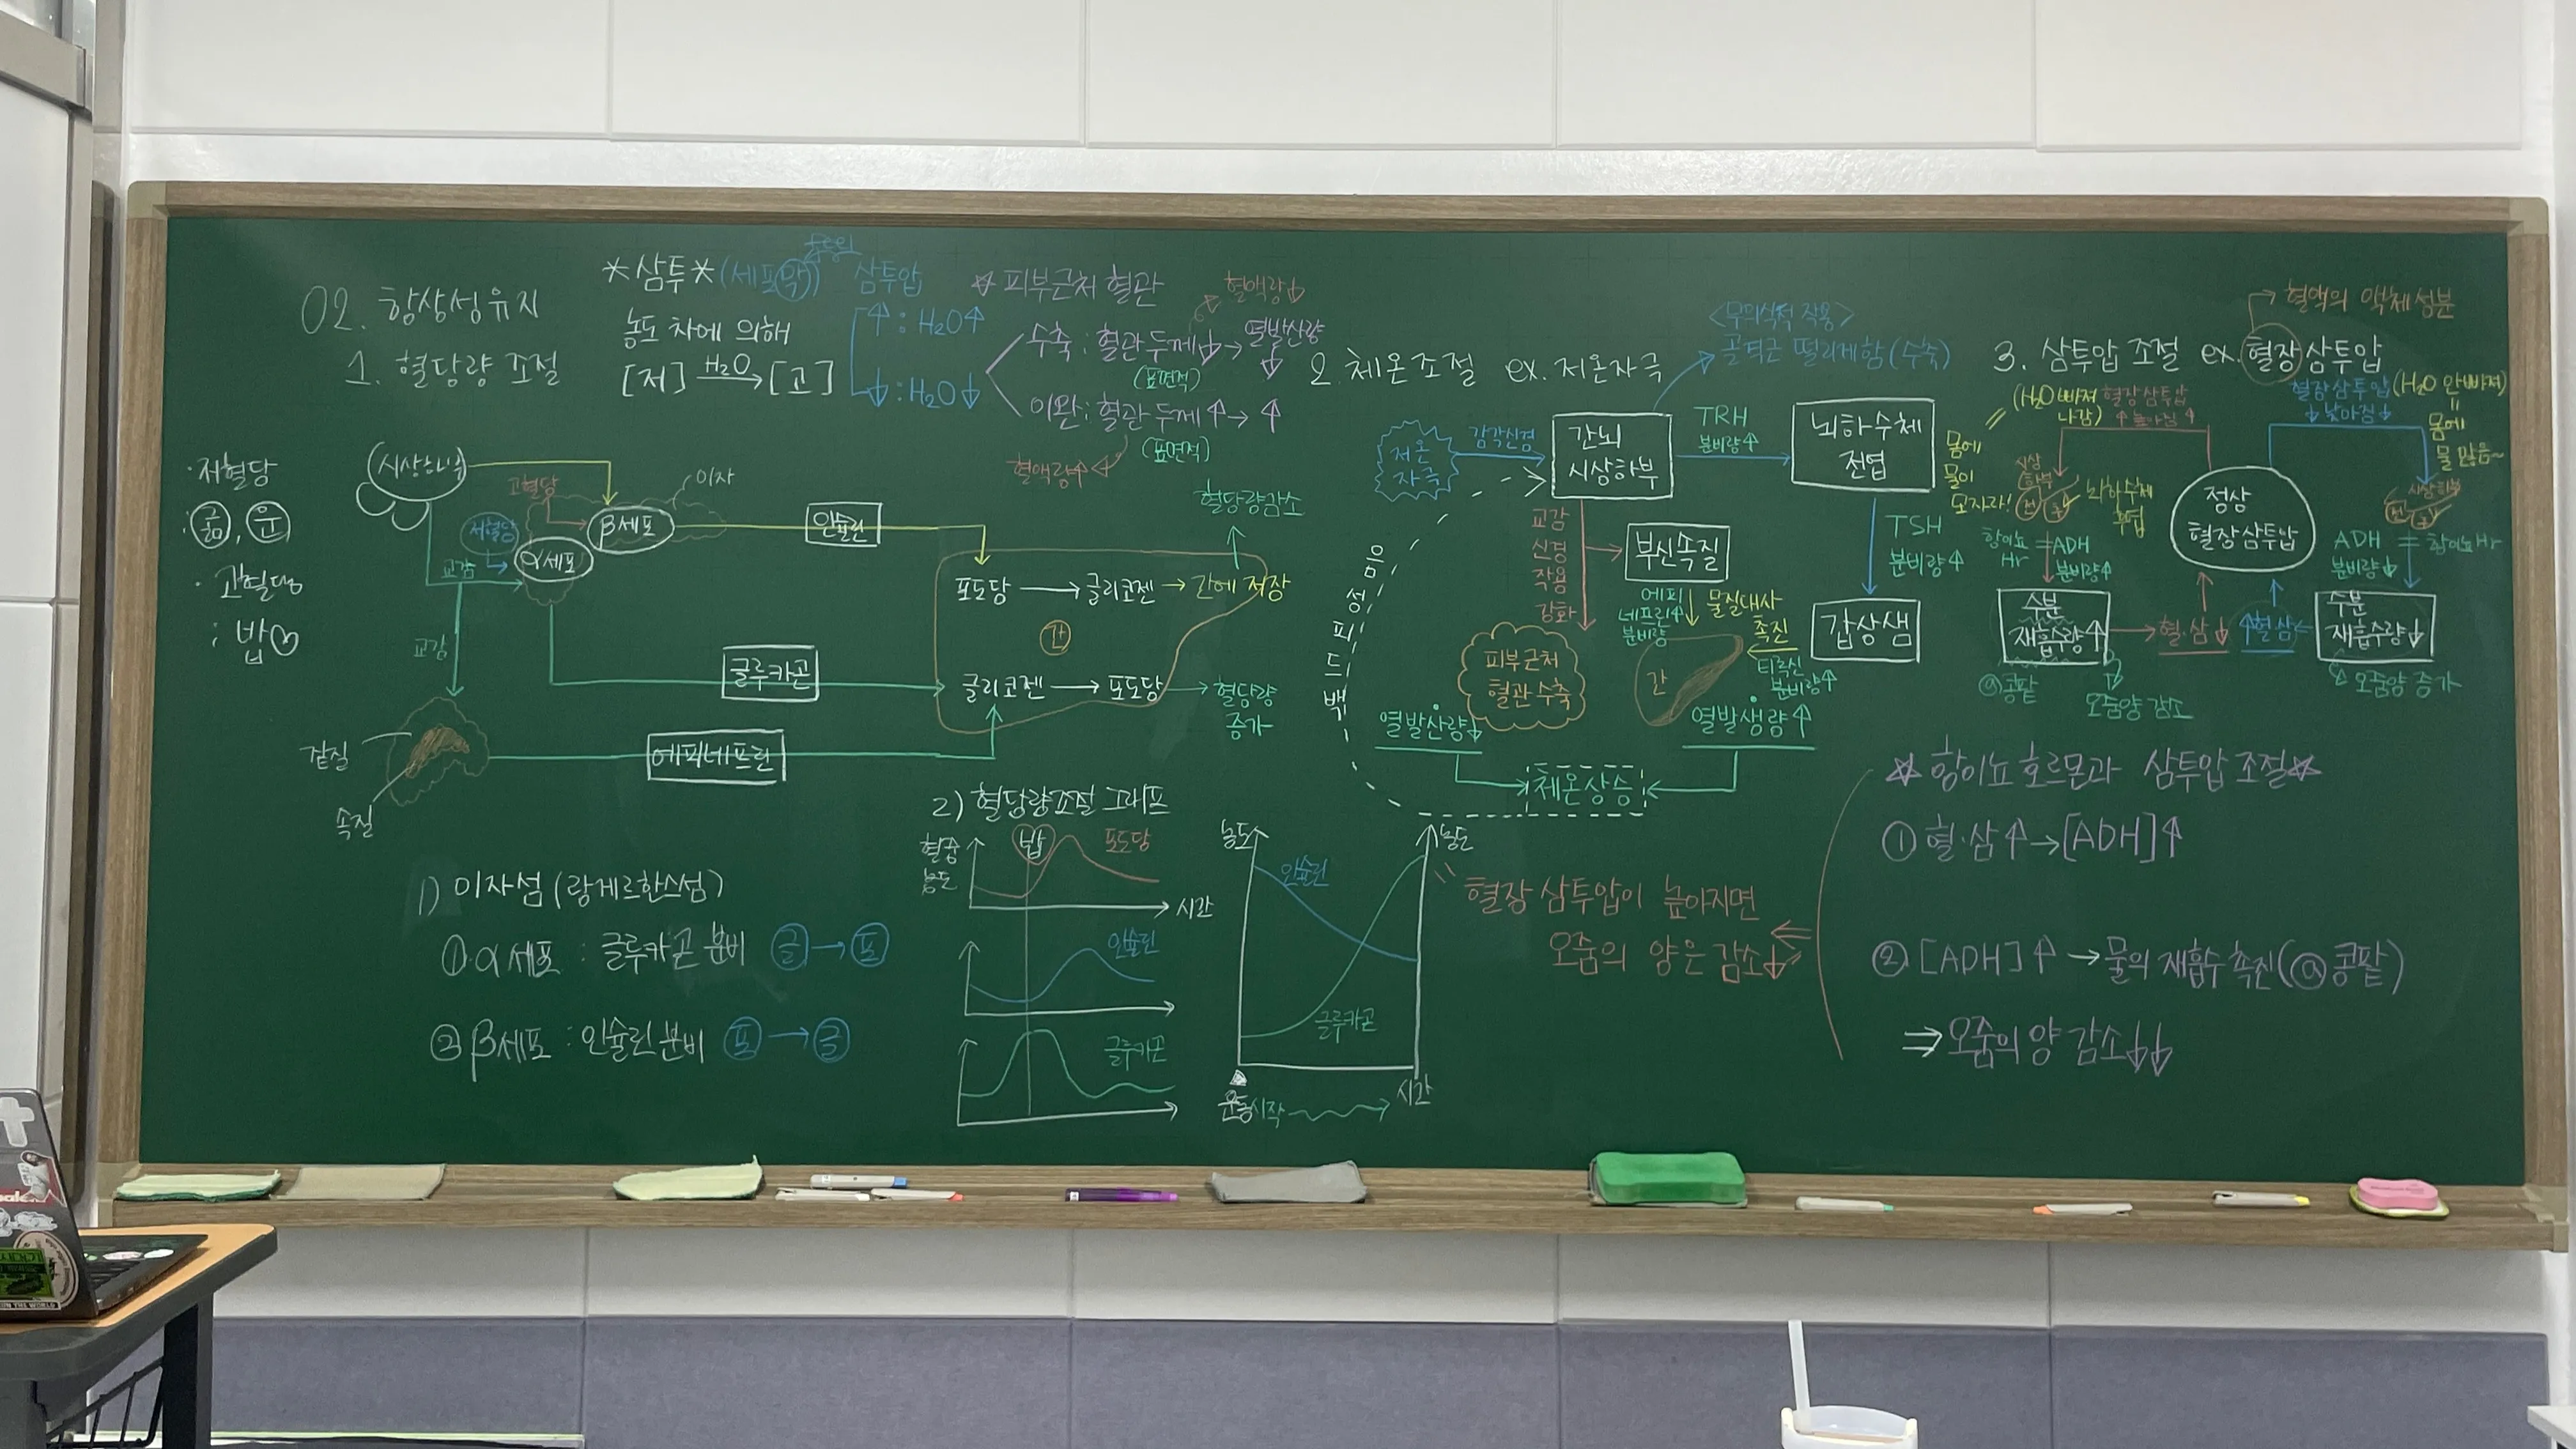 02. 항상성유지
1. 혈당량 조절
*삼투* (세포막)
농도 차에 의해
[저] H₂O→ [고]
삼투압
↑ : H₂O↑
↓ : H₂O↓
☆ 피부근처 혈관
혈액량↓
수축 : 혈관 두께↓ → 열발산량↓
(표면적)
이완 : 혈관 두께↑ → ↑
(표면적)
혈액량↑
· 저혈당
: 굶, 운
· 고혈당
: 밥♡
시상하부
고혈당
이자
β세포
저혈당
α세포
교감
교감
인슐린
글루카곤
에피네프린
겉질
속질
혈당량감소
포도당 → 글리코젠 → 간에 저장
간
글리코젠 → 포도당 → 혈당량 증가
1) 이자섬 (랑게르한스섬)
① α세포 : 글루카곤 분비 글 → 포
② β세포 : 인슐린 분비 포 → 글
2) 혈당량조절 그래프
혈중 농도
밥
포도당
시간
인슐린
글루카곤
농도
농도
인슐린
글루카곤
운동시작
시간
2. 체온조절 ex. 저온자극
<무의식적 작용>
골격근 떨리게함 (수축)
저온 자극
감각신경
간뇌
시상하부
TRH
분비량↑
뇌하수체
전엽
TSH
분비량↑
갑상샘
교감
신경
작용
강화
부신속질
에피
네프린↑
분비량
물질대사
촉진
티록신
분비량↑
간
피부근처
혈관 수축
열발산량↓
열발생량↑
체온상승
음성피드백
3. 삼투압 조절 ex. 혈장삼투압
혈액의 액체성분
(H₂O 빠져
나감)
몸에
물이
모자라!
혈장삼투압
↑ 높아짐 ↑
시상
하부
전 후
뇌하수체
후엽
항이뇨
Hr
ADH
분비량↑
수분
재흡수량↑
@콩팥
오줌양 감소
혈·삼↓
정상
혈장삼투압
혈장삼투압
↓ 낮아짐 ↓
(H₂O 안빠져)
몸에
물 많음~
시상하부
전 후
ADH
분비량↓
항이뇨Hr
수분
재흡수량↓
오줌양 증가
↑혈·삼
☆ 항이뇨 호르몬과 삼투압 조절 ☆
① 혈·삼↑ → [ADH]↑
② [ADH]↑ → 물의 재흡수 촉진(@콩팥)
⇒ 오줌의 양 감소↓↓
혈장 삼투압이 높아지면
오줌의 양은 감소↓